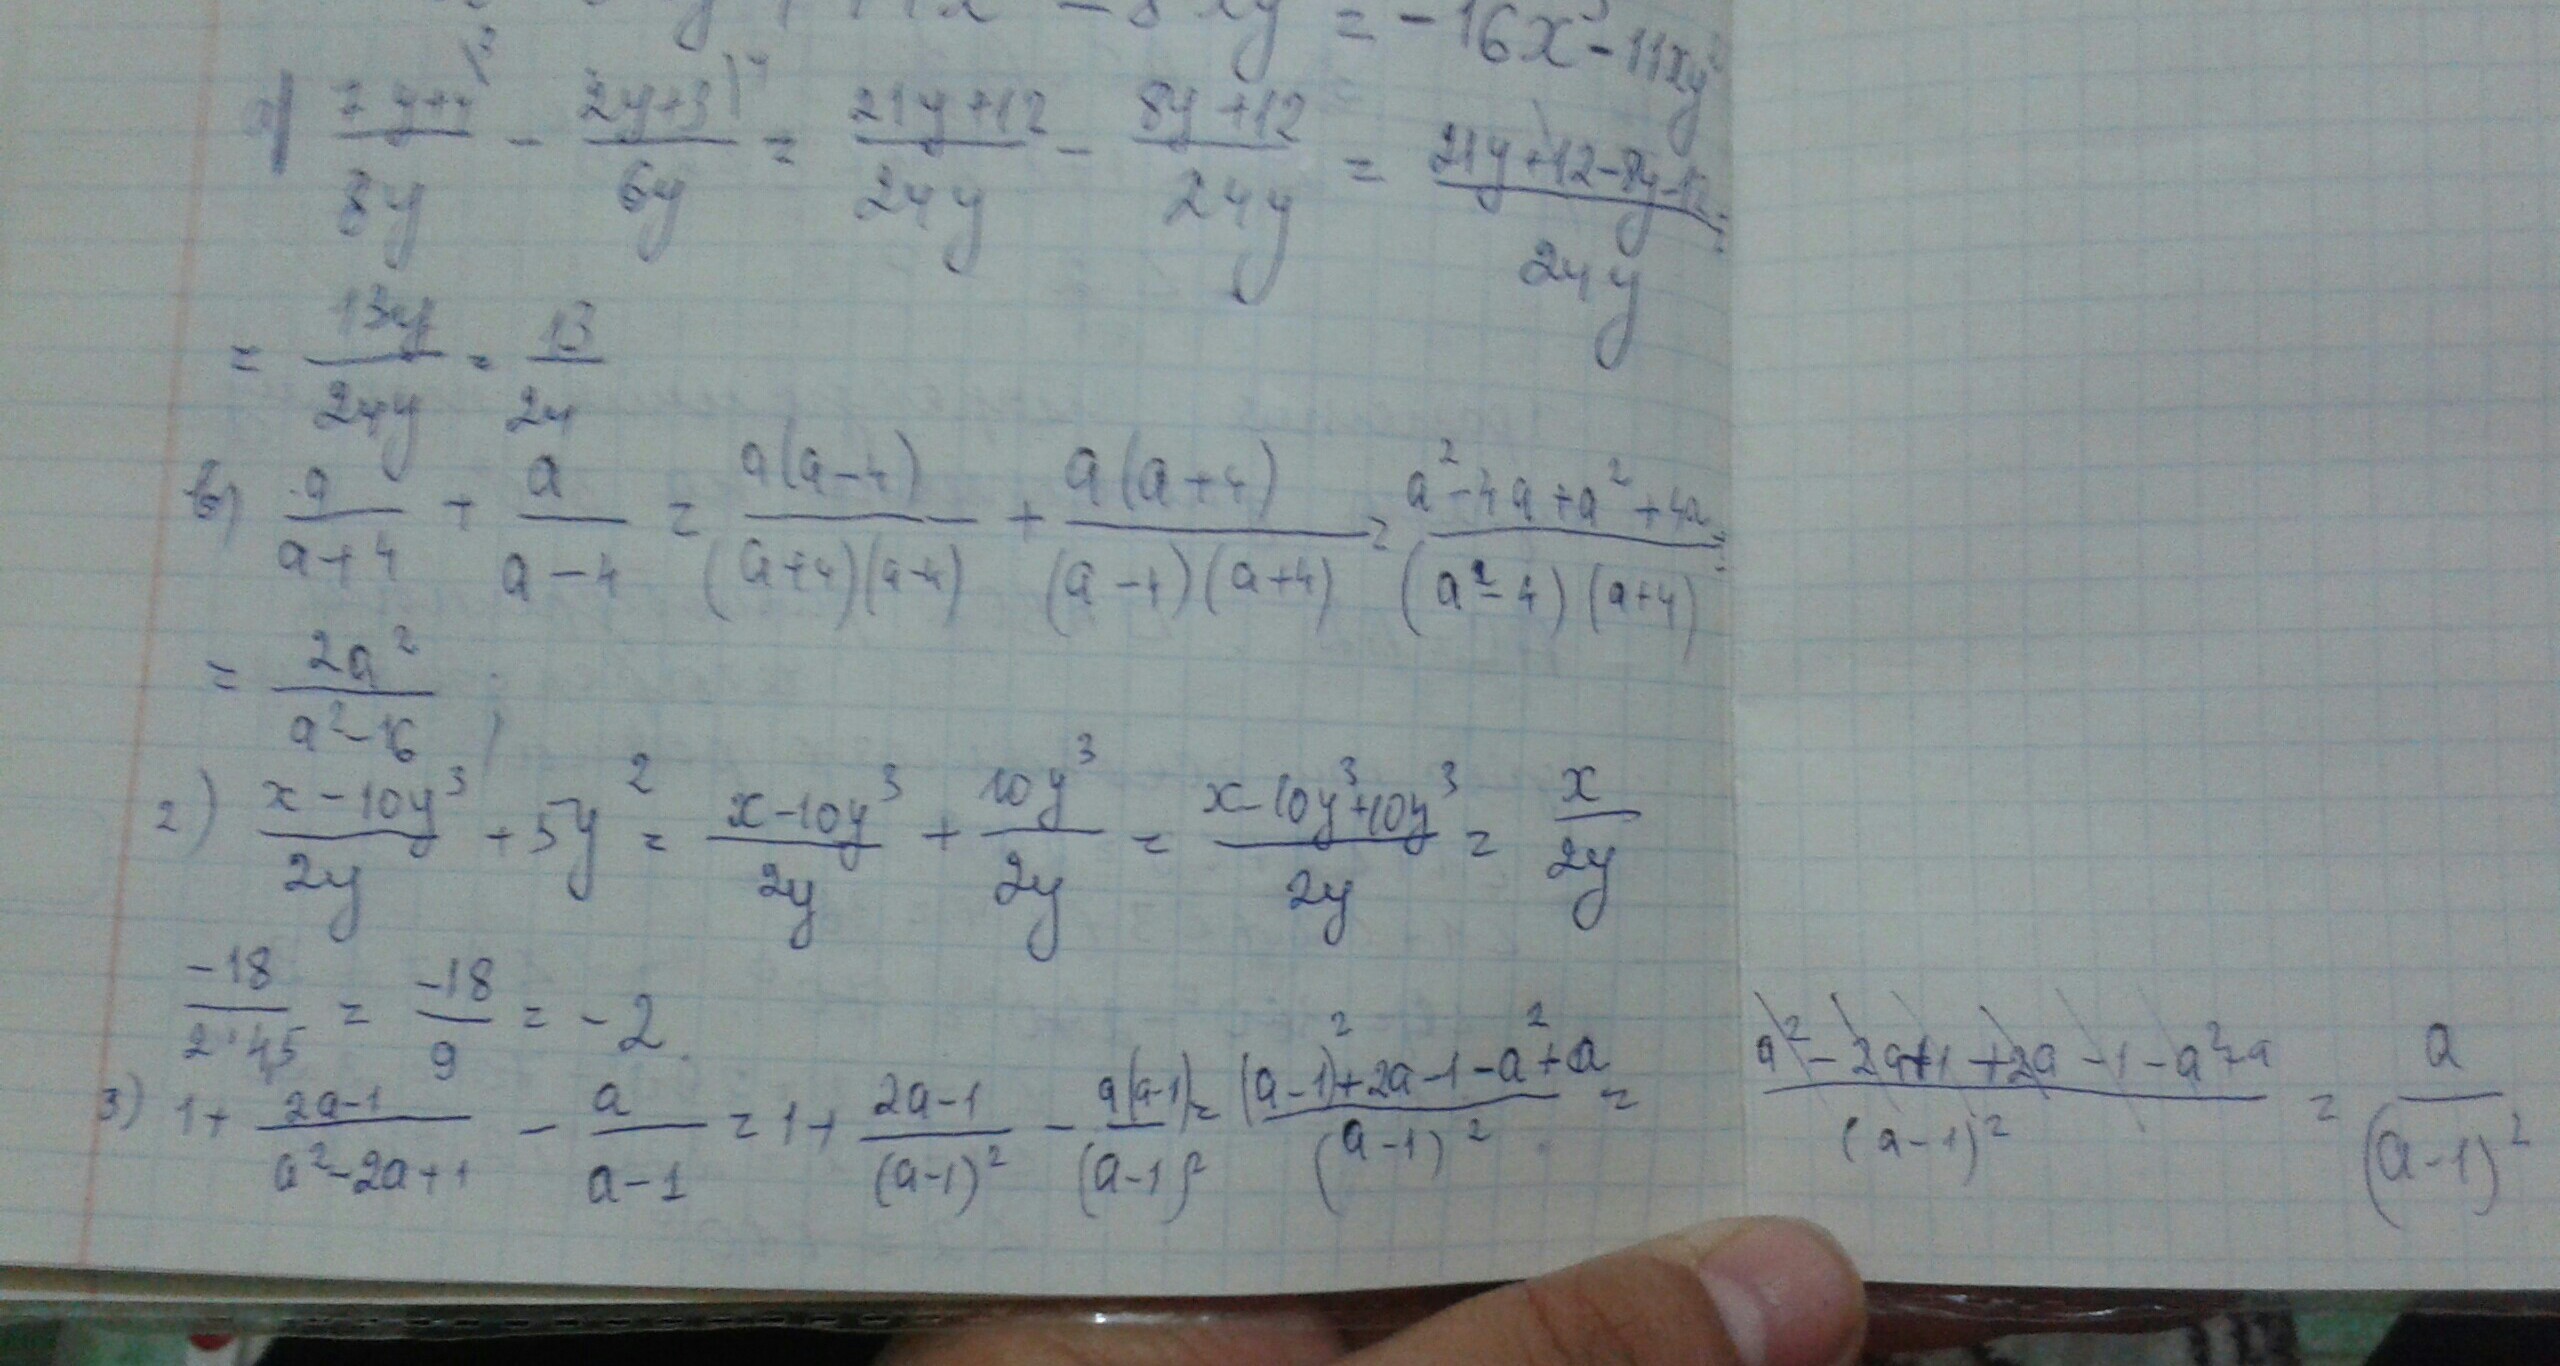 = -16x³ - 11xy²
(7y+4)/8y - (2y+3)/6y = (21y+12)/24y - (8y+12)/24y = (21y+12-8y-12)/24y =
= 13y/24y = 13/24
в) a/(a+4) + a/(a-4) = a(a-4)/(a+4)(a-4) + a(a+4)/(a-4)(a+4) = (a²-4a+a²+4a)/(a²-4)(a+4) =
= 2a²/(a²-16) ;
2) (x-10y³)/2y + 5y² = (x-10y³)/2y + 10y³/2y = (x-10y³+10y³)/2y = x/2y
-18/(2·4,5) = -18/9 = -2.
3) 1 + (2a-1)/(a²-2a+1) - a/(a-1) = 1 + (2a-1)/(a-1)² - a(a-1)/(a-1)² = ((a-1)²+2a-1-a²+a)/(a-1)² = (a²-2a+1+2a-1-a²+a)/(a-1)² = a/(a-1)²